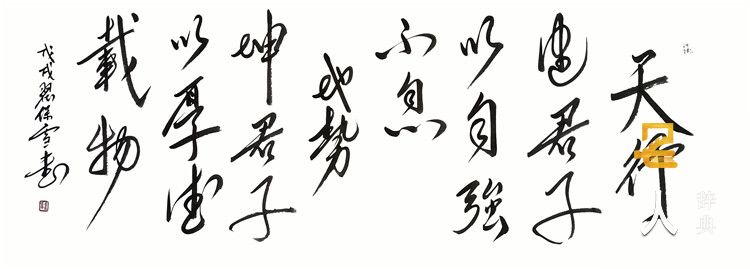 天行
健君子
以自強
不息
地勢
坤君子
以厚德
載物
戊戌
人
辞典